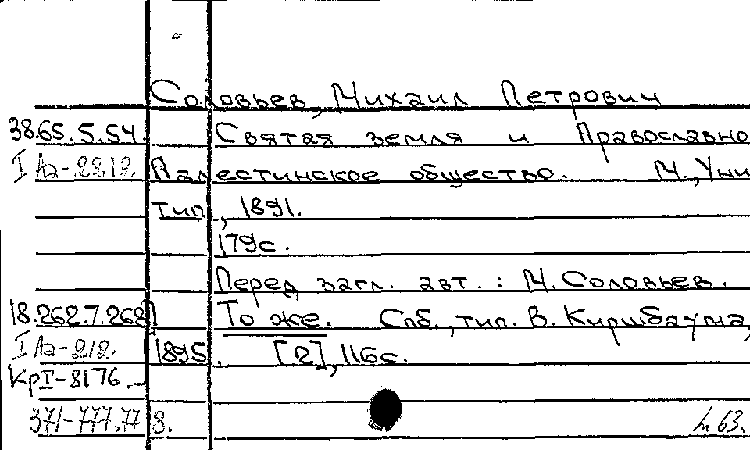 Соловьев, Михаил Петрович
38.65.5.54. Святая земля и Православно
I Аа-2212. Палестинское общество. М., Уни
тип., 1891.
179с.
Перед загл. авт.: М. Соловьев.
18.262.7.262 То же. Спб., тип. В. Киршбаума,
I Аа-212. 1895. [2], 116с.
КрI-8176.
371-777.77 8. 63.